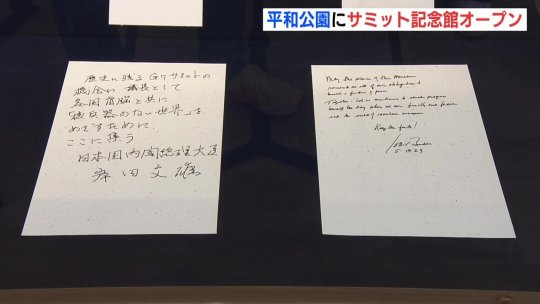 平和公園にサミット記念館オープン
歴史に残るG7サミットの
機会に議長として
各国首脳と共に
「核兵器のない世界」を
めざすために
ここに集う
日本国内閣総理大臣
岸田文雄
May the stories of this Museum
remind us all of our obligations to
build a future of peace.
Together - let us continue to make progress
toward the day when we can finally and forever
rid the world of nuclear weapons.
Keep the faith!
5.19.23